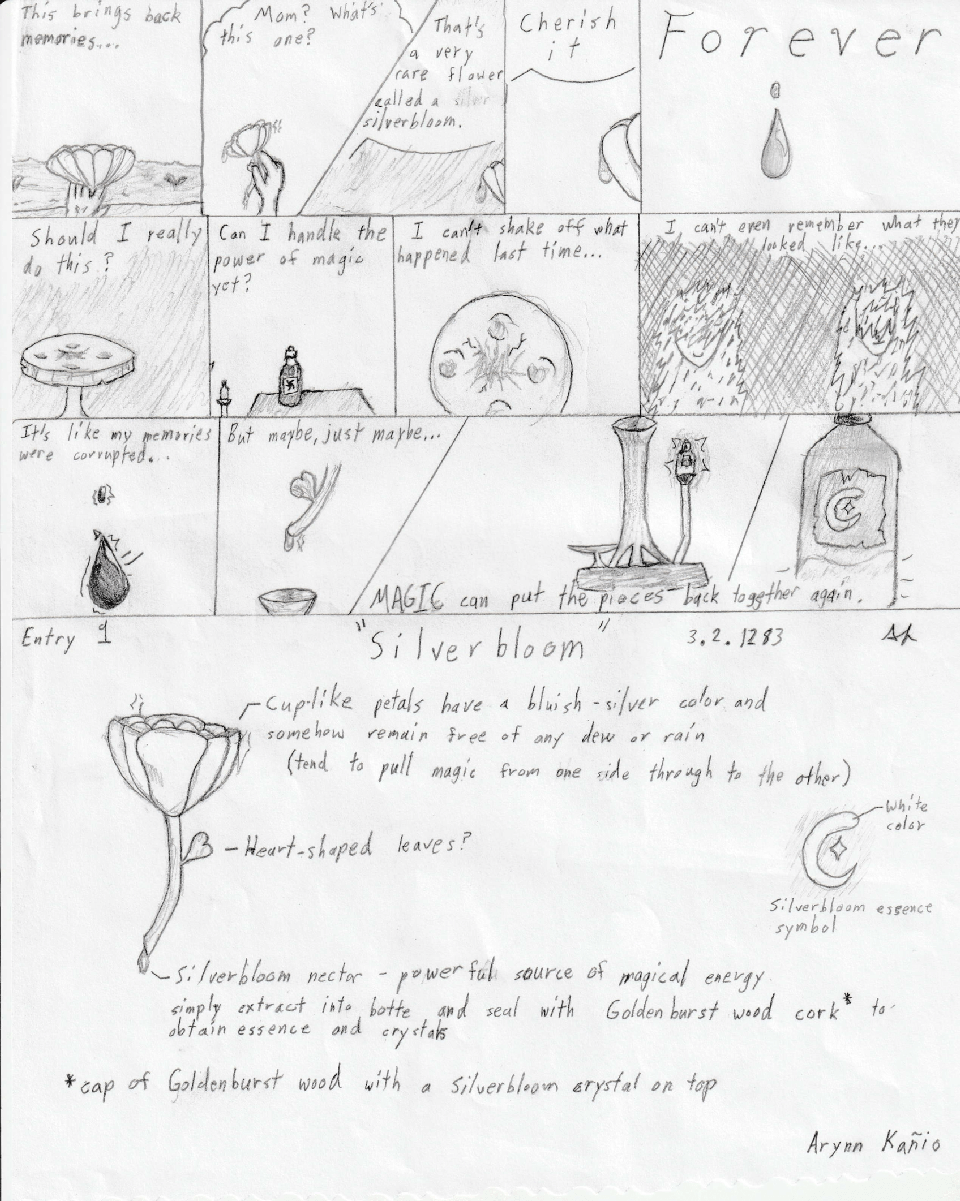 This brings back
memories...
Mom? What's
this one?
That's
a very
rare flower
called a silver
silverbloom.
Cherish
it
Forever
Should I really
do this?
Can I handle the
power of magic
yet?
I can't shake off what
happened last time...
I can't even remember what they
looked like...
It's like my memories
were corrupted...
But maybe, just maybe...
MAGIC can put the pieces back together again.
Entry 1
"Silverbloom"
3.2.1283
AK
Cup-like petals have a bluish-silver color and
somehow remain free of any dew or rain
(tend to pull magic from one side through to the other)
White
color
- Heart-shaped leaves?
Silverbloom essence
symbol
Silverbloom nectar - powerful source of magical energy
simply extract into botte and seal with Goldenburst wood cork* to
obtain essence and crystals
*cap of Goldenburst wood with a silverbloom crystal on top
Arynn Kañio